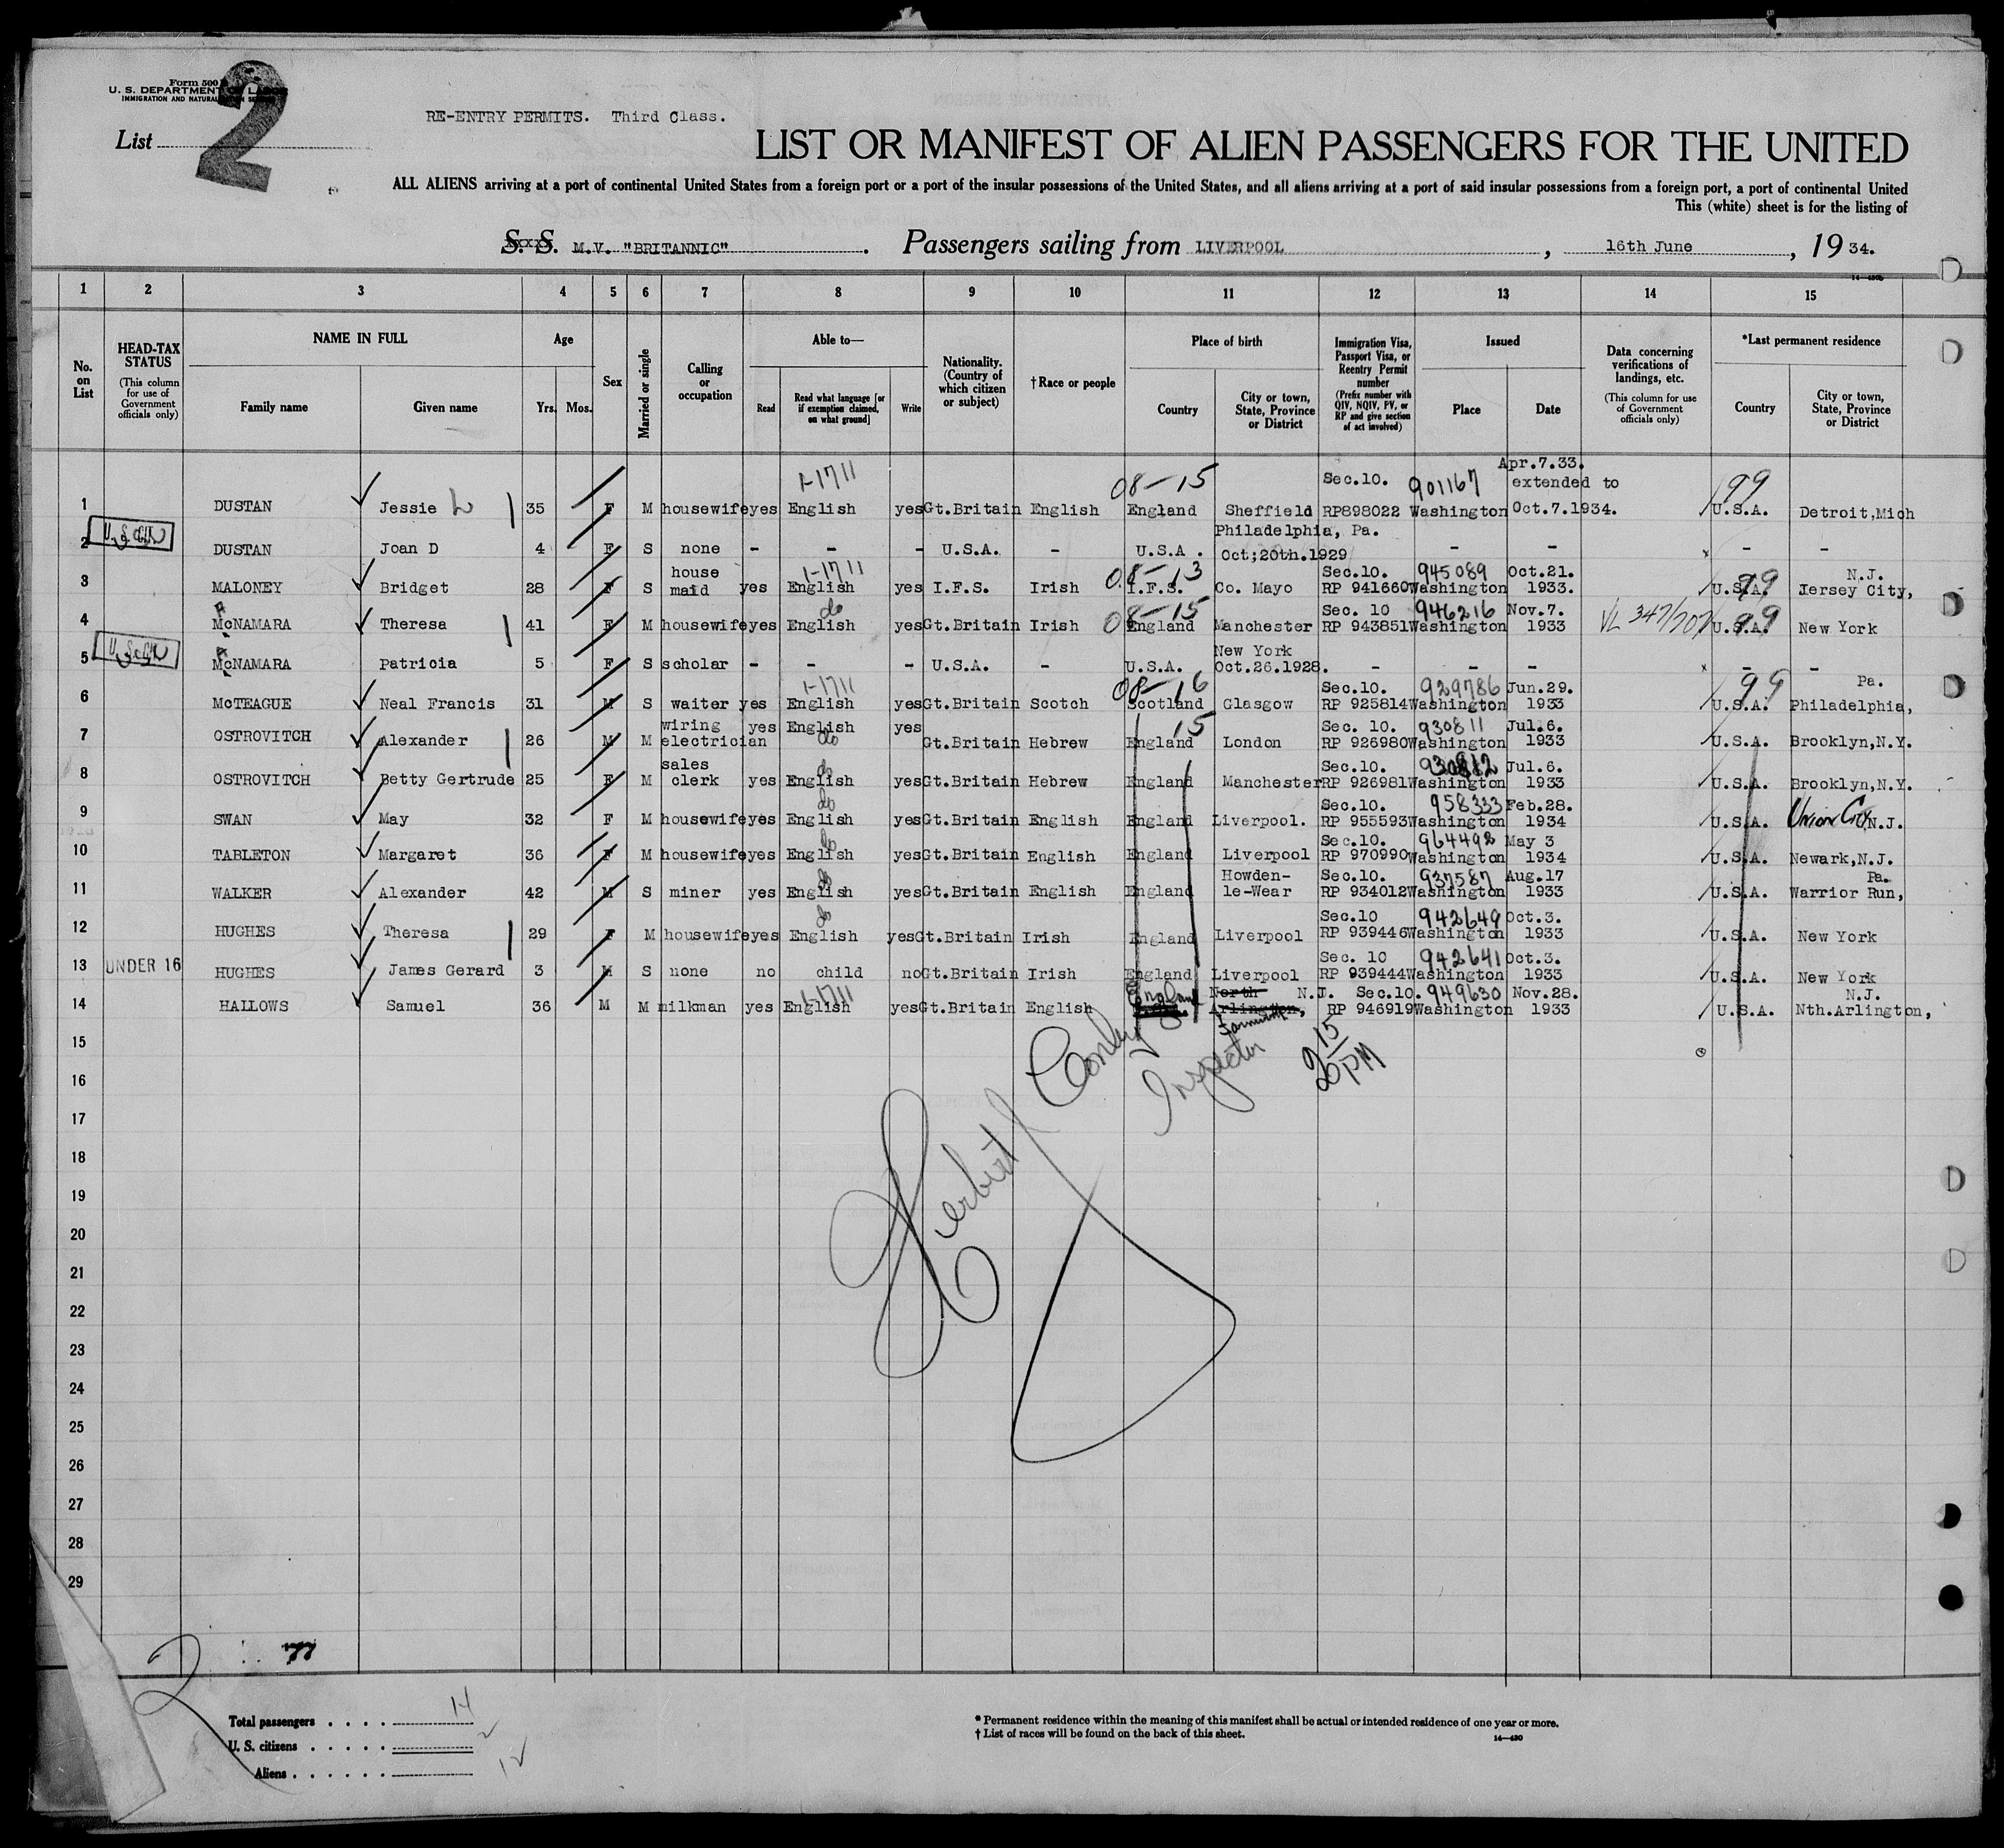 Form 500
U. S. DEPARTMENT OF LABOR
IMMIGRATION AND NATURALIZATION SERVICE
List 2
RE-ENTRY PERMITS. Third Class.
LIST OR MANIFEST OF ALIEN PASSENGERS FOR THE UNITED
ALL ALIENS arriving at a port of continental United States from a foreign port or a port of the insular possessions of the United States, and all aliens arriving at a port of said insular possessions from a foreign port, a port of continental United
This (white) sheet is for the listing of
S. S. M.V. "BRITANNIC" . Passengers sailing from LIVERPOOL , 16th June , 19 34.
1 2 3 4 5 6 7 8 9 10 11 12 13 14 15
No. on List
HEAD-TAX STATUS (This column for use of Government officials only)
NAME IN FULL Family name Given name
Age Yrs. Mos.
Sex
Married or single
Calling or occupation
Able to— Read Read what language [or if exemption claimed, on what ground] Write
Nationality. (Country of which citizen or subject)
†Race or people
Place of birth Country City or town, State, Province or District
Immigration Visa, Passport Visa, or Reentry Permit number (Prefix number with QIV, NQIV, PV, or RP and give section of act involved)
Issued Place Date
Data concerning verifications of landings, etc. (This column for use of Government officials only)
*Last permanent residence Country City or town, State, Province or District
1-1711 08-15 Sec.10. 901167 Apr.7.33. extended to 99
1 DUSTAN Jessie 35 F M housewife yes English yes Gt.Britain English England Sheffield RP898022 Washington Oct.7.1934. U.S.A. Detroit,Mich
Philadelphia, Pa.
2 DUSTAN Joan D 4 F S none - - - U.S.A. - U.S.A. Oct;20th.1929 - - - -
house 1-1711 08-13 Sec.10. 945089 Oct.21. 99 N.J.
3 MALONEY Bridget 28 F S maid yes English yes I.F.S. Irish I.F.S. Co. Mayo RP 941660 Washington 1933. U.S.A. Jersey City,
do 08-15 Sec. 10 946216 Nov.7. VL 347/707 99
4 McNAMARA Theresa 41 F M housewife yes English yes Gt.Britain Irish England Manchester RP 943851 Washington 1933 U.S.A. New York
New York
5 McNAMARA Patricia 5 F S scholar - - - U.S.A. - U.S.A. Oct.26.1928. - - - - -
1-1711 08-16 Sec.10. 929786 Jun.29. 99 Pa.
6 McTEAGUE Neal Francis 31 M S waiter yes English yes Gt.Britain Scotch Scotland Glasgow RP 925814 Washington 1933 U.S.A. Philadelphia,
wiring yes English yes 15 Sec. 10. 930811 Jul.6.
7 OSTROVITCH Alexander 26 M M electrician do Gt.Britain Hebrew England London RP 926980 Washington 1933 U.S.A. Brooklyn,N.Y.
sales do Sec.10. 930812 Jul.6.
8 OSTROVITCH Betty Gertrude 25 F M clerk yes English yes Gt.Britain Hebrew England Manchester RP 926981 Washington 1933 U.S.A. Brooklyn,N.Y.
do Sec.10. 958333 Feb.28.
9 SWAN May 32 F M housewife yes English yes Gt.Britain English England Liverpool. RP 955593 Washington 1934 U.S.A. Union City N.J.
do Sec.10. 964492 May 3
10 TABLETON Margaret 36 F M housewife yes English yes Gt.Britain English England Liverpool RP 970990 Washington 1934 U.S.A. Newark,N.J.
do Howden- Sec.10. 937587 Aug.17 Pa.
11 WALKER Alexander 42 M S miner yes English yes Gt.Britain English England le-Wear RP 934012 Washington 1933 U.S.A. Warrior Run,
do Sec.10 942649 Oct.3.
12 HUGHES Theresa 29 F M housewife yes English yes Gt.Britain Irish England Liverpool RP 939446 Washington 1933 U.S.A. New York
Sec. 10 942641 Oct.3.
13 UNDER 16 HUGHES James Gerard 3 M S none no child no Gt.Britain Irish England Liverpool RP 939444 Washington 1933 U.S.A. New York
1-1711 England North N.J. Sec.10. 949630 Nov.28. N.J.
14 HALLOWS Samuel 36 M M milkman yes English yes Gt.Britain English Arlington, RP 946919 Washington 1933 U.S.A. Nth.Arlington,
15
16
17
18
19
20
21
22
23
24
25
26
27
28
29
Herbert Conley
Inspector
2 15 PM
77
2
Total passengers . . . . 14
U. S. citizens . . . . . 2
Aliens . . . . . . 12
* Permanent residence within the meaning of this manifest shall be actual or intended residence of one year or more.
† List of races will be found on the back of this sheet.
14—430